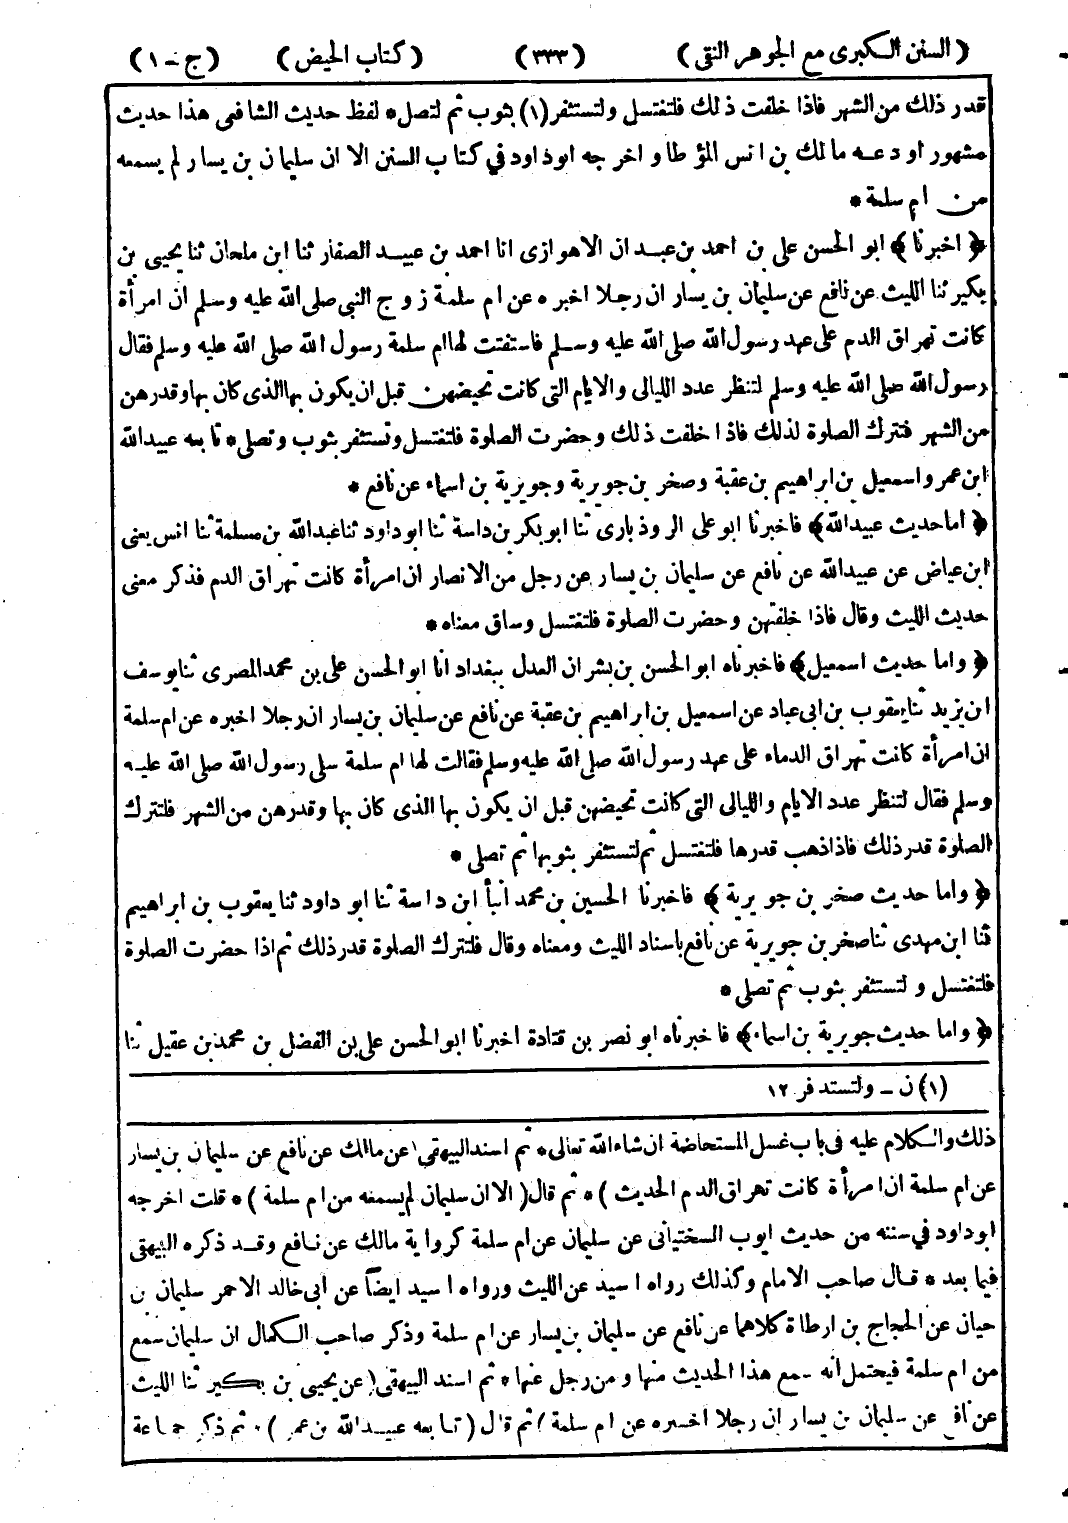 (السنن الكبرى مع الجوهر النقى) (٣٣٣) (كتاب الحيض) (ج - ١)
قدر ذلك من الشهر فاذا خلفت ذلك فلتغتسل ولتستثفر (١) بثوب ثم لتصل * لفظ حديث الشافعى هذا حديث
مشهور اودعه مالك بن انس المؤطا واخرجه ابوداود في كتاب السنن الا ان سليمان بن يسار لم يسمعه
من ام سلمة *
﴿ اخبرنا ﴾ ابو الحسن على بن احمد بن عبدان الاهوازى انا احمد بن عبيد الصفار ثنا ابن ملحان ثنا يحيى بن
بكير ثنا الليث عن نافع عن سليمان بن يسار ان رجلا اخبره عن ام سلمة زوج النبى صلى الله عليه وسلم ان امرأة
كانت تهراق الدم على عهد رسول الله صلى الله عليه وسلم فاستفتت لها ام سلمة رسول الله صلى الله عليه وسلم فقال
رسول الله صلى الله عليه وسلم لتنظر عدد الليالى والايام التى كانت تحيضهن قبل ان يكون بها الذى كان بها وقدرهن
من الشهر فتترك الصلوة لذلك فاذا خلفت ذلك وحضرت الصلوة فلتغتسل وتستثفر بثوب وتصلى * تابعه عبيد الله
ابن عمر واسمعيل بن ابراهيم بن عقبة وصخر بن جويرية وجويرية بن اسماء عن نافع *
﴿ اما حديث عبيد الله ﴾ فاخبرنا ابو على الروذبارى ثنا ابو بكر بن داسة ثنا ابو داود ثنا عبد الله بن مسلمة ثنا انس يعنى
ابن عياض عن عبيد الله عن نافع عن سليمان بن يسار عن رجل من الانصار ان امرأة كانت تهراق الدم فذكر معنى
حديث الليث وقال فاذا خلفتهن وحضرت الصلوة فلتغتسل وساق معناه *
﴿ واما حديث اسمعيل ﴾ فاخبرناه ابو الحسن بن بشران العدل ببغداد انا ابو الحسن على بن محمد المصرى ثنا يوسف
ابن يزيد ثنا يعقوب بن ابى عباد عن اسمعيل بن ابراهيم بن عقبة عن نافع عن سليمان بن يسار ان رجلا اخبره عن ام سلمة
ان امرأة كانت تهراق الدماء على عهد رسول الله صلى الله عليه وسلم فقالت لها ام سلمة سلى رسول الله صلى الله عليه
وسلم فقال لتنظر عدد الايام والليالى التى كانت تحيضهن قبل ان يكون بها الذى كان بها وقدرهن من الشهر فلتترك
الصلوة قدر ذلك فاذا ذهب قدرها فلتغتسل ثم لتستثفر بثوبها ثم تصلى *
﴿ واما حديث صخر بن جويرية ﴾ فاخبرنا الحسين بن محمد أنبأ ابن داسة ثنا ابو داود ثنا يعقوب بن ابراهيم
ثنا ابن مهدى ثنا صخر بن جويرية عن نافع باسناد الليث ومعناه وقال فلتترك الصلوة قدر ذلك ثم اذا حضرت الصلوة
فلتغتسل ولتستثفر بثوب ثم تصلى *
﴿ واما حديث جويرية بن اسماء ﴾ فاخبرناه ابو نصر بن قتادة اخبرنا ابو الحسن على بن الفضل بن محمد بن عقيل ثنا
(١) ن - ولتستدفر ١٢
ذلك والكلام عليه فى باب غسل المستحاضة ان شاء الله تعالى * ثم اسند البيهقى (عن مالك عن نافع عن سليمان بن يسار
عن ام سلمة ان امرأة كانت تهراق الدم الحديث) * ثم قال (الا ان سليمان لم يسمعه من ام سلمة) * قلت اخرجه
ابو داود في سننه من حديث ايوب السختيانى عن سليمان عن ام سلمة كرواية مالك عن نافع وقد ذكره البيهقى
فيما بعد * قال صاحب الامام وكذلك رواه اسيد عن الليث ورواه اسيد ايضا عن ابى خالد الاحمر سليمان بن
حيان عن الحجاج بن ارطاة كلاهما عن نافع عن سليمان بن يسار عن ام سلمة وذكر صاحب الكمال ان سليمان سمع
من ام سلمة فيحتمل انه سمع هذا الحديث منها ومن رجل عنها * ثم اسند البيهقى (عن يحيى بن بكير ثنا الليث
عن نافع عن سليمان بن يسار ان رجلا اخبره عن ام سلمة) ثم قال (تابعه عبيد الله بن عمر) * ثم ذكر جماعة